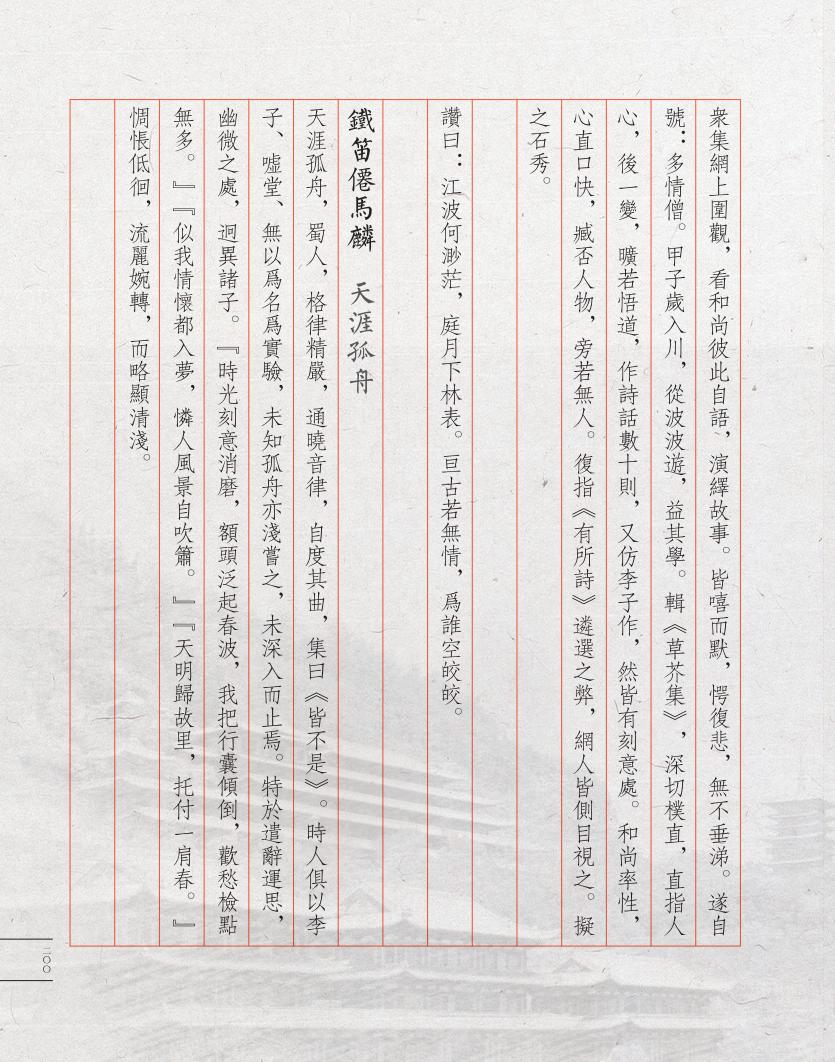 衆集網上圍觀，看和尚彼此自語，演繹故事。皆嘻而默，愕復悲，無不垂涕。遂自
號：多情僧。甲子歲入川，從波波遊，益其學。輯《草芥集》，深切樸直，直指人
心，後一變，曠若悟道，作詩話數十則，又仿李子作，然皆有刻意處。和尚率性，
心直口快，臧否人物，旁若無人。復指《有所詩》遴選之弊，網人皆側目視之。擬
之石秀。
讚曰：江波何渺茫，庭月下林表。亘古若無情，爲誰空皎皎。
鐵笛僊馬麟　天涯孤舟
天涯孤舟，蜀人，格律精嚴，通曉音律，自度其曲，集曰《皆不是》。時人俱以李
子、噓堂、無以爲名爲實驗，未知孤舟亦淺嘗之，未深入而止焉。特於遣辭運思，
幽微之處，迥異諸子。『時光刻意消磨，額頭泛起春波，我把行囊傾倒，歡愁檢點
無多。』『似我情懷都入夢，憐人風景自吹簫。』『天明歸故里，托付一肩春。』
惆悵低徊，流麗婉轉，而略顯清淺。
二〇〇